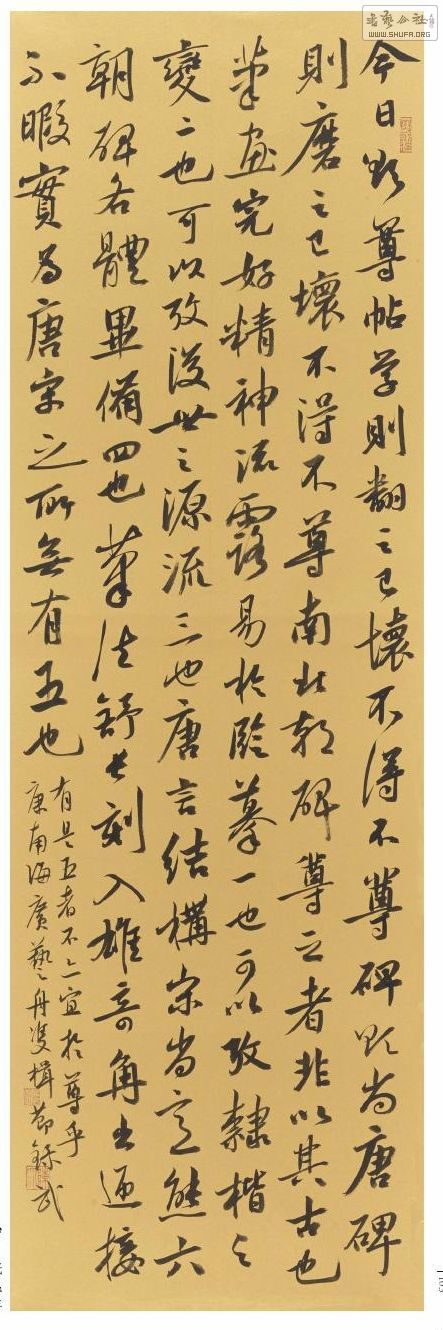 今日欲尊帖学則翻之已壞不得不尊碑欲尚唐碑
則磨之已壞不得不尊南北朝碑尊之者非以其古也
筆画完好精神流露易於臨摹一也可以攷隸楷之
變二也可以攷後世之源流三也唐言結構宋尚意態六
朝碑各體畢備四也筆法舒長刻入雄奇角出迎接
不暇實為唐宋之所無有五也
有是五者不亦宜於尊乎
康南海廣藝舟雙楫節錄
書藝公社
WWW.SHUFA.ORG